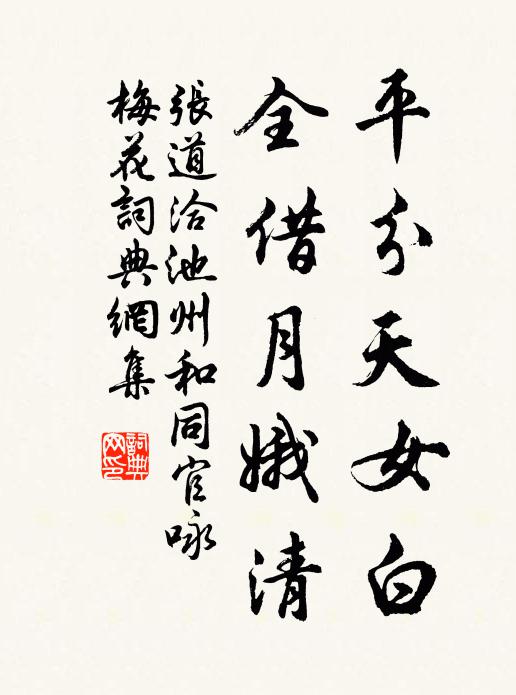 平分天女白
全借月娥清
張道洽池州和同官咏
梅花詞典網集
詞典网印